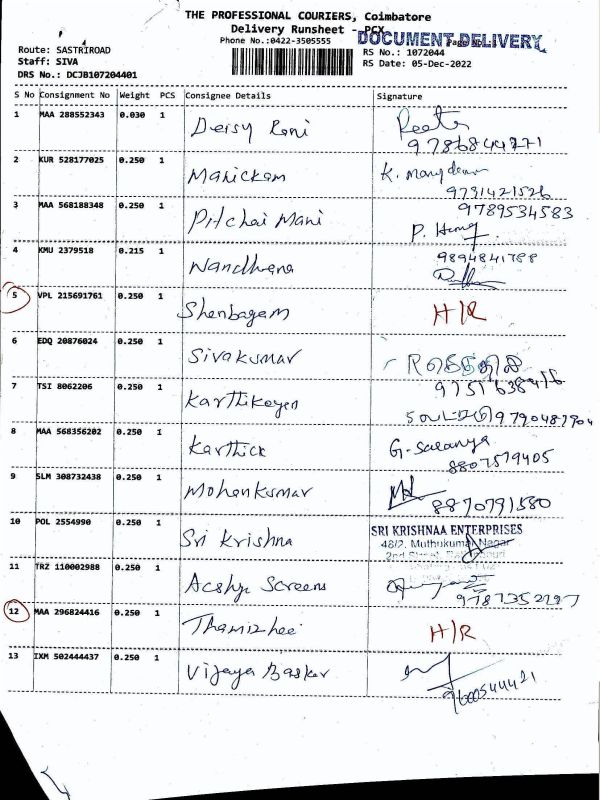 THE PROFESSIONAL COURIERS, Coimbatore
Delivery Runsheet - PCX
DOCUMENT DELIVERY
Phone No.:0422-3505555
Route: SASTRIROAD
RS No.: 1072044
Staff: SIVA
RS Date: 05-Dec-2022
DRS No.: DCJB107204401
S No Consignment No Weight PCS Consignee Details Signature
1 MAA 288552343 0.030 1 Deisy Rani
2 KUR 528177025 0.250 1 Manickam
9731421526
3 MAA 568188348 0.250 1 Pitchai Mani 9789534583
4 KMU 2379518 0.215 1 Nandhana 9894841788
5 VPL 215691761 0.250 1 Shenbagam H/R
6 EDQ 20876024 0.250 1 Sivakumar
7 TSI 8062206 0.250 1 Karthikeyen
8 MAA 568356202 0.250 1 Karthick G. Saranya
8807579405
9 SLM 308732438 0.250 1 Mohankumar
10 POL 2554990 0.250 1 Sri Krishna SRI KRISHNAA ENTERPRISES
48/2, Muthukumar Nagar
11 TRZ 110002988 0.250 1 Screens
12 MAA 296824416 0.250 1 Thamizhee H/R
13 IXM 502444437 0.250 1 Vijaya Basker
9600544421